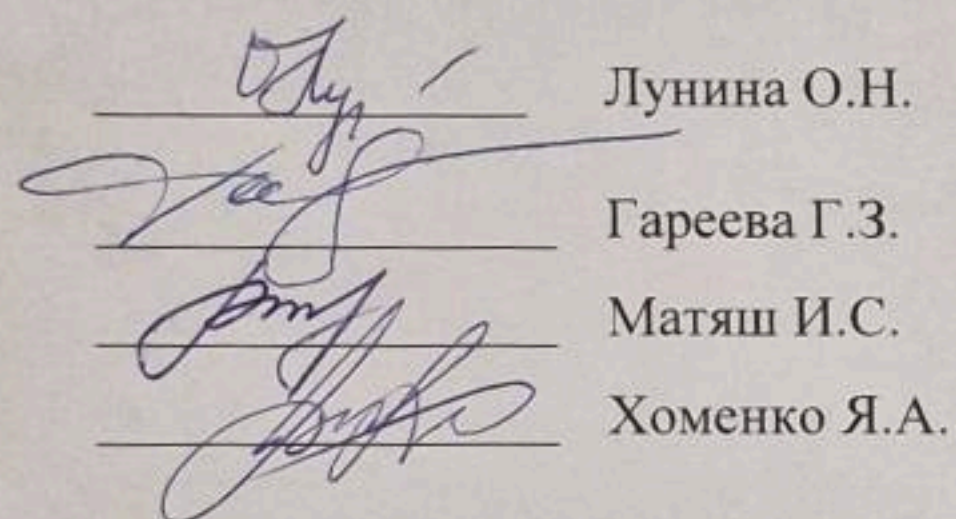 Лунина О.Н.
Гареева Г.З.
Матяш И.С.
Хоменко Я.А.